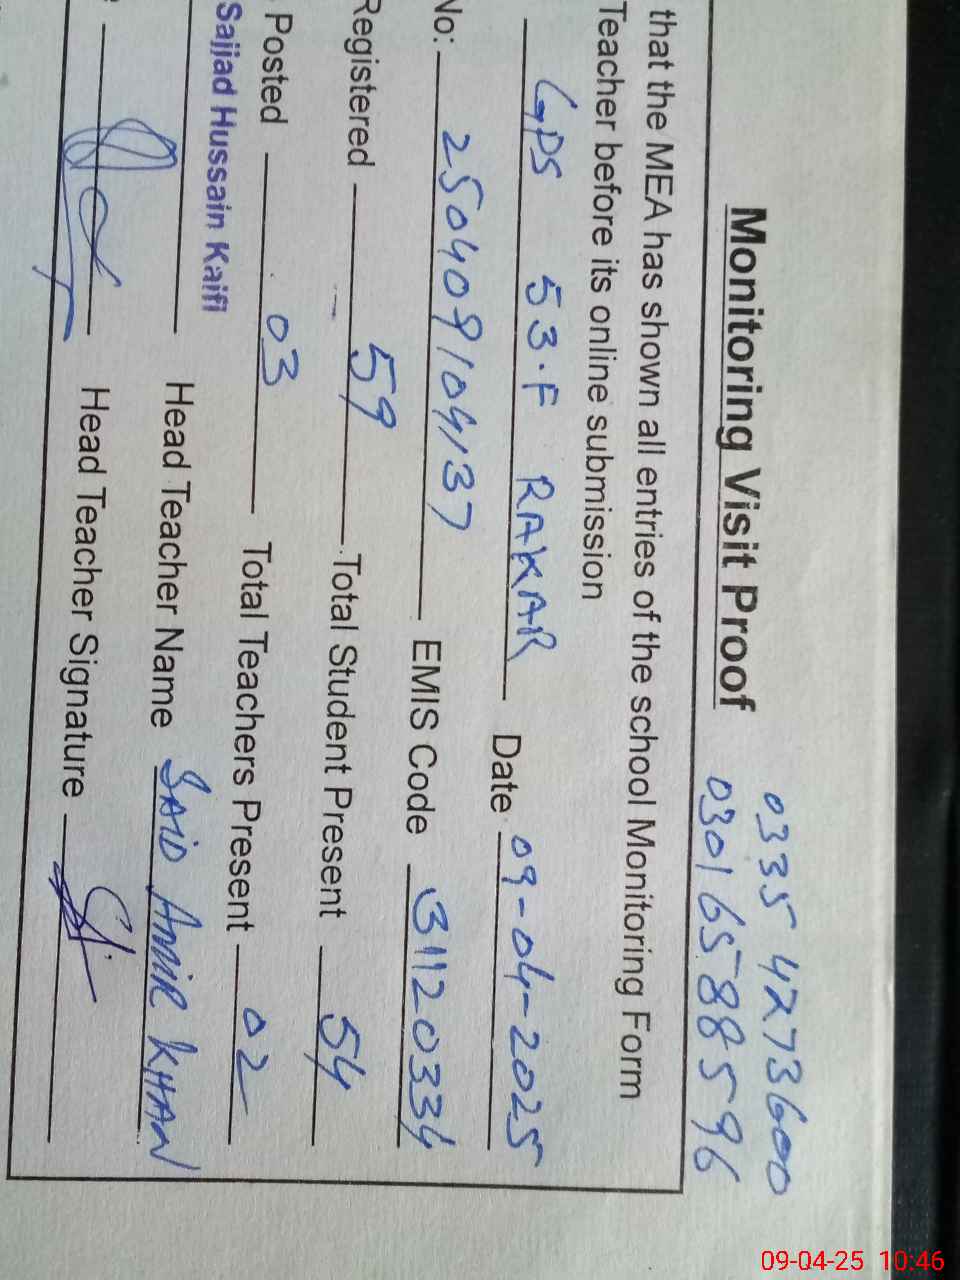 0335 4273600
Monitoring Visit Proof 0301 6588596
that the MEA has shown all entries of the school Monitoring Form
Teacher before its online submission
GPS 53.F RAKAR Date 09-04-2025
No: 250409104137 EMIS Code 31120334
Registered 59 Total Student Present 54
Posted 03 Total Teachers Present 02
Sajjad Hussain Kaifi
Head Teacher Name SAID AMIR KHAN
Head Teacher Signature
09-04-25 10:46